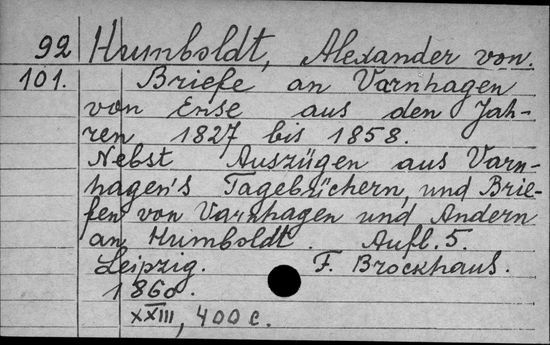 92 Humboldt, Alexander von.
101. Briefe an Varnhagen
von Ense aus den Jah-
ren 1827 bis 1858.
Nebst Auszügen aus Varn-
hagen's Tagebüchern, und Brie-
fen von Varnhagen und Andern
an Humboldt. Aufl. 5.
Leipzig. F. Brockhaus.
1860.
XXIII, 400 c.